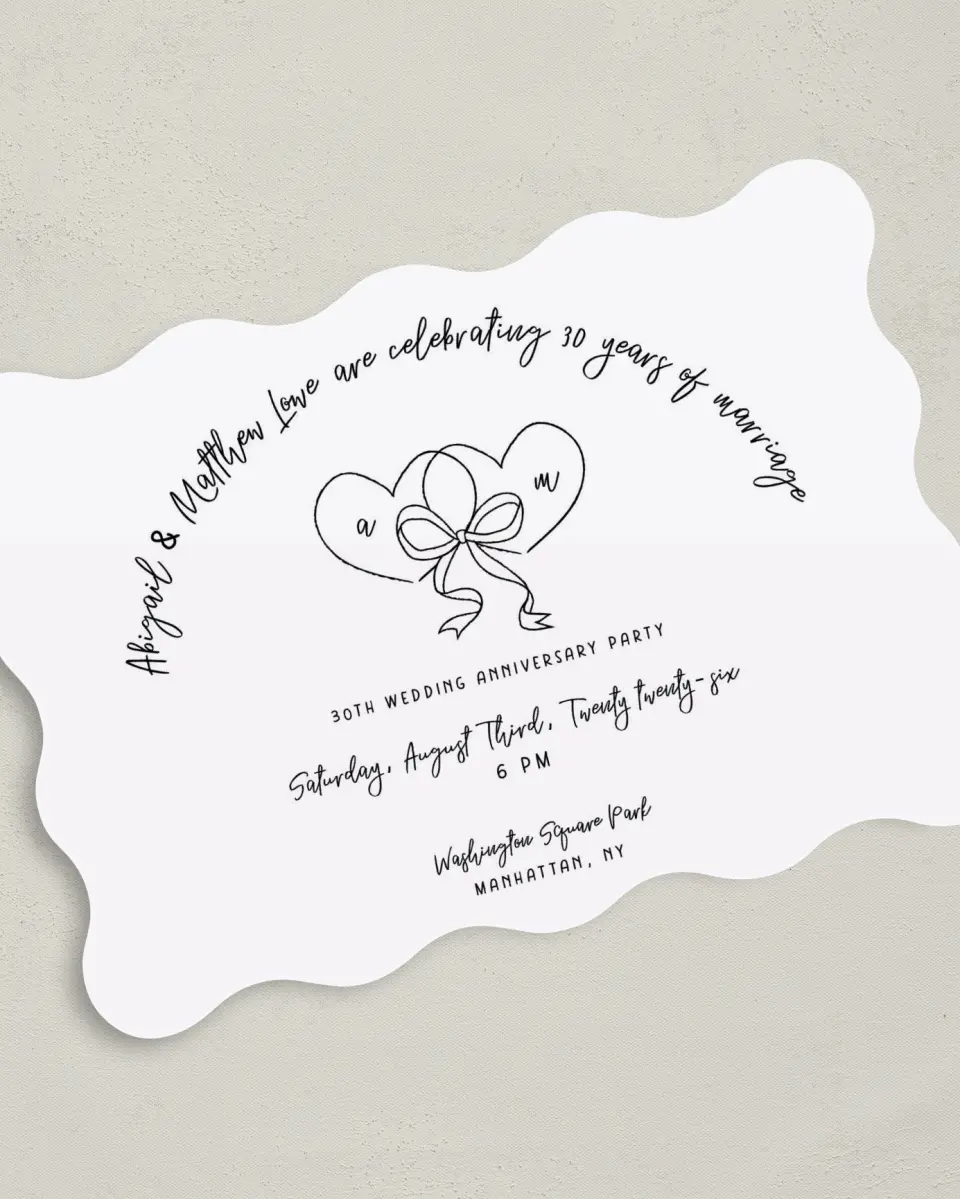 Abigail & Matthew Lowe are celebrating 30 years of marriage
a
m
30TH WEDDING ANNIVERSARY PARTY
Saturday, August Third, Twenty twenty-six
6 PM
Washington Square Park
MANHATTAN, NY